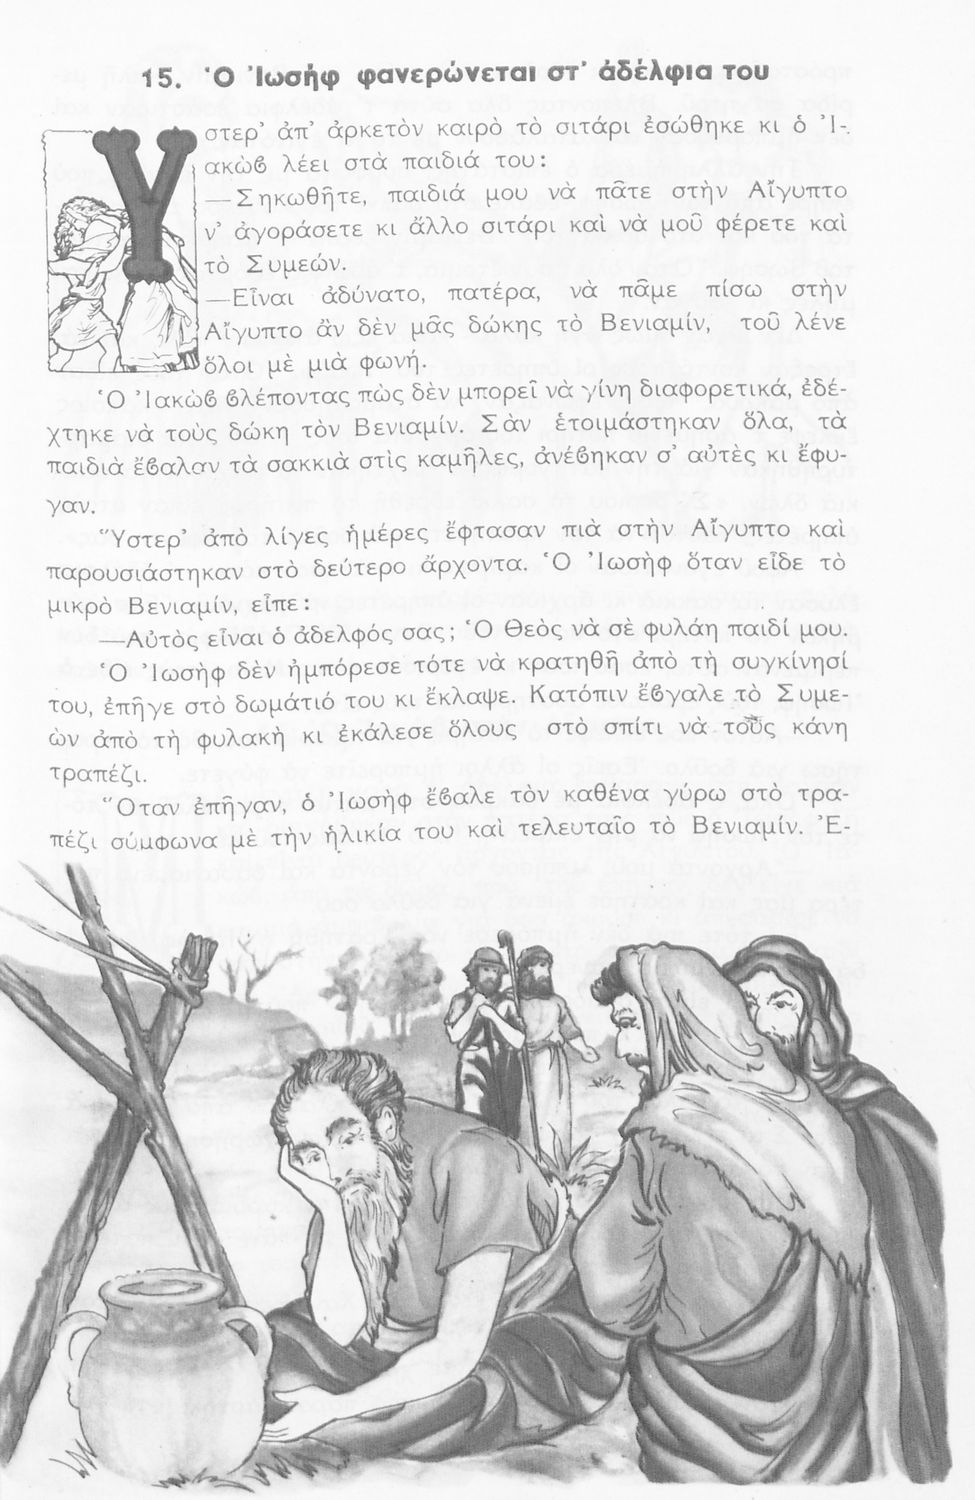 15. Ὁ Ἰωσὴφ φανερώνεται στ' ἀδέλφια του
Υστερ' ἀπ' ἀρκετὸν καιρὸ τὸ σιτάρι ἐσώθηκε κι ὁ Ἰ-
ακὼβ λέει στὰ παιδιά του:
—Σηκωθῆτε, παιδιά μου νὰ πᾶτε στὴν Αἴγυπτο
ν' ἀγοράσετε κι ἄλλο σιτάρι καὶ νὰ μοῦ φέρετε καὶ
τὸ Συμεών.
—Εἶναι ἀδύνατο, πατέρα, νὰ πᾶμε πίσω στὴν
Αἴγυπτο ἂν δὲν μᾶς δώκης τὸ Βενιαμίν, τοῦ λένε
ὅλοι μὲ μιὰ φωνή.
Ὁ Ἰακὼβ βλέποντας πὼς δὲν μπορεῖ νὰ γίνη διαφορετικά, ἐδέ-
χτηκε νὰ τοὺς δώκη τὸν Βενιαμίν. Σὰν ἑτοιμάστηκαν ὅλα, τὰ
παιδιὰ ἔβαλαν τὰ σακκιὰ στὶς καμῆλες, ἀνέβηκαν σ' αὐτὲς κι ἔφυ-
γαν.
Ὕστερ' ἀπὸ λίγες ἡμέρες ἔφτασαν πιὰ στὴν Αἴγυπτο καὶ
παρουσιάστηκαν στὸ δεύτερο ἄρχοντα. Ὁ Ἰωσὴφ ὅταν εἶδε τὸ
μικρὸ Βενιαμίν, εἶπε:
—Αὐτὸς εἶναι ὁ ἀδελφός σας; Ὁ Θεὸς νὰ σὲ φυλάη παιδί μου.
Ὁ Ἰωσὴφ δὲν ἠμπόρεσε τότε νὰ κρατηθῆ ἀπὸ τὴ συγκίνησί
του, ἐπῆγε στὸ δωμάτιό του κι ἔκλαψε. Κατόπιν ἔβγαλε τὸ Συμε-
ὼν ἀπὸ τὴ φυλακὴ κι ἐκάλεσε ὅλους στὸ σπίτι νὰ τοὺς κάνη
τραπέζι.
Ὅταν ἐπῆγαν, ὁ Ἰωσὴφ ἔβαλε τὸν καθένα γύρω στὸ τρα-
πέζι σύμφωνα μὲ τὴν ἡλικία του καὶ τελευταῖο τὸ Βενιαμίν. Ἐ-